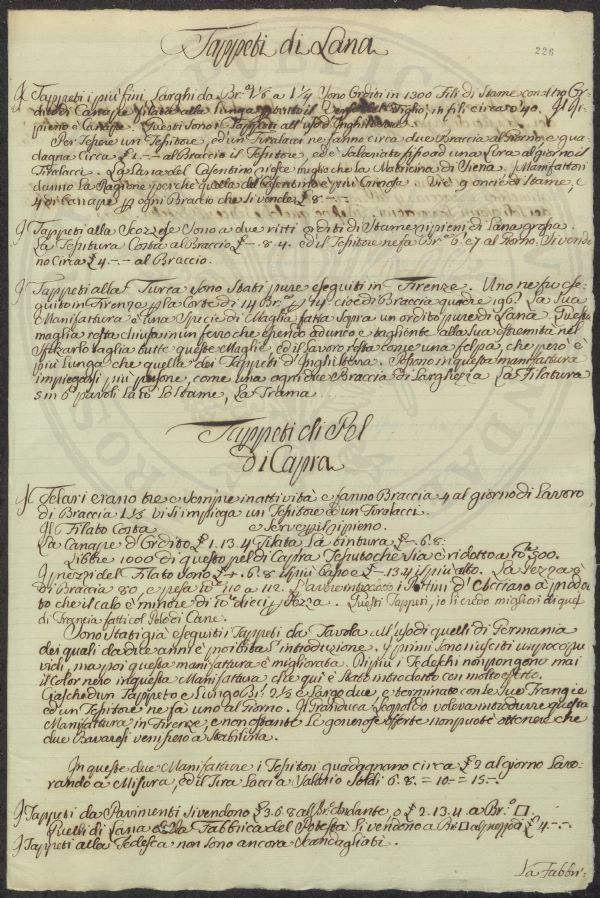 Tappeti di Lana
226
I Tappeti i più fini, Larghi da Br.ª 1⅙ a 1¼ sono Orditi in 1300 Fili di Stame con altro Or-
dito di Canape filata alla lunga
ripieno è Canape. Questi sono i Tappeti all'uso d'Inghilterra.
Per Tessere un Tessitore, ed un Tiralacci ne fanno circa due Braccia al Giorno e gua-
dagna Circa £ 1.-- al Braccio il Tessitore, ed è Salariato fino ad una Lira al giorno il
Tiralacci. La Lana del Casentino riesce meglio che la Matricina di Siena. I Manifattori
danno la Ragione perchè quella del Casentino è più Cotnosa. once di Stame, e
4 di Canape p ogni Braccio che si vende £ 8.--
I Tappeti alla Scozzese sono a due ritti orditi di Stame ripieni di Lana grossa.
La Tessitura Costa al Braccio £ -. 8. 4. ed il Tessitore ne fa Br.ª 6 e 7 al Giorno. Si vendo-
no Circa £ 4.-- al Braccio.
I Tappeti alla Turca sono Stati pure eseguiti in Firenze. Uno ne fu ese-
guito in Firenze p la Corte di 14 Br.ª p 14 cioè di Braccia quadre 196. La Sua
Manifattura è una Specie di Maglia fatta sopra un ordito pure di Lana. Questa
maglia resta chiusa in un ferro che essendo adunco e tagliente alla Sua estremità nel
Sfilzarlo taglia tutte queste Maglie, ed il lavoro resta come una felpa, che però è
più Lunga che quella dei Tappeti d'Inghilterra. Possono in questa manifattura
impiegarsi più persone, come una ogni due Braccia di Larghezza. La Filatura
lo Stame, La Trama....
Tappeti di Pel
di Capra
I Telari erano tre e sempre in attività e fanno Braccia 4 al giorno di Lavoro
di Braccia 1⅓ vi si impiega un Tessitore e un Tiralacci.
Il Filato Costa e serve p il ripieno.
La Canape d'Ordito £ 1. 13. 4 filata. La tintura £ -. 6. 8.
Libbre 1000 di questo pel di Capra Tessuto che sia è ridotto a 500.
I prezzi del Filato sono £ -. 6. 8 il più basso e £ -. 13. 4 il più alto. La pezza è
di Braccia 80, e pesa 110 a 112. i Pettini d'Acciaro à prodot-
to che il calo è minore di dieci p Pezza. Questi Tappeti, io li credo migliori di quei
di Francia fatti col Pelo di Cane.
Sono Stati già eseguiti i Tappeti da Tavola all'uso di quelli di Germania
dei quali da due anni è poi stata introduzione. I primi sono riusciti un poco ru-
vidi, ma poi questa manifattura è migliorata. Di più i Tedeschi non pongono mai
il Color nero in questa Manifattura che qui è Stato introdotto con molto effetto.
Ciaschedun Tappeto è Lungo Br.ª 2½ e Largo due, e terminato con le sue Frangie
ed un Tessitore ne fa uno al Giorno. Il Granduca Leopoldo voleva introdurre questa
Manifattura in Firenze, e nonostante le generose offerte non potè ottenere che
due Bavaresi venissero a stabilirla.
In queste due Manifatture i Tessitori guadagnano circa £ 2 al giorno Lavo-
rando a Misura, ed il Tira Lacci a Salario Soldi 6. 8. = 10-= 15--
I Tappeti da Pavimenti si vendono £ 3. 6. 8 al Br.º Andante, o £ 2. 13. 4 a Br.º □
Quelli di Lana Fabbrica del Potestà si vendono a Br.º □ £ 4.--
I Tappeti alla Tedesca non sono ancora Scandagliati.
La Fabbri-